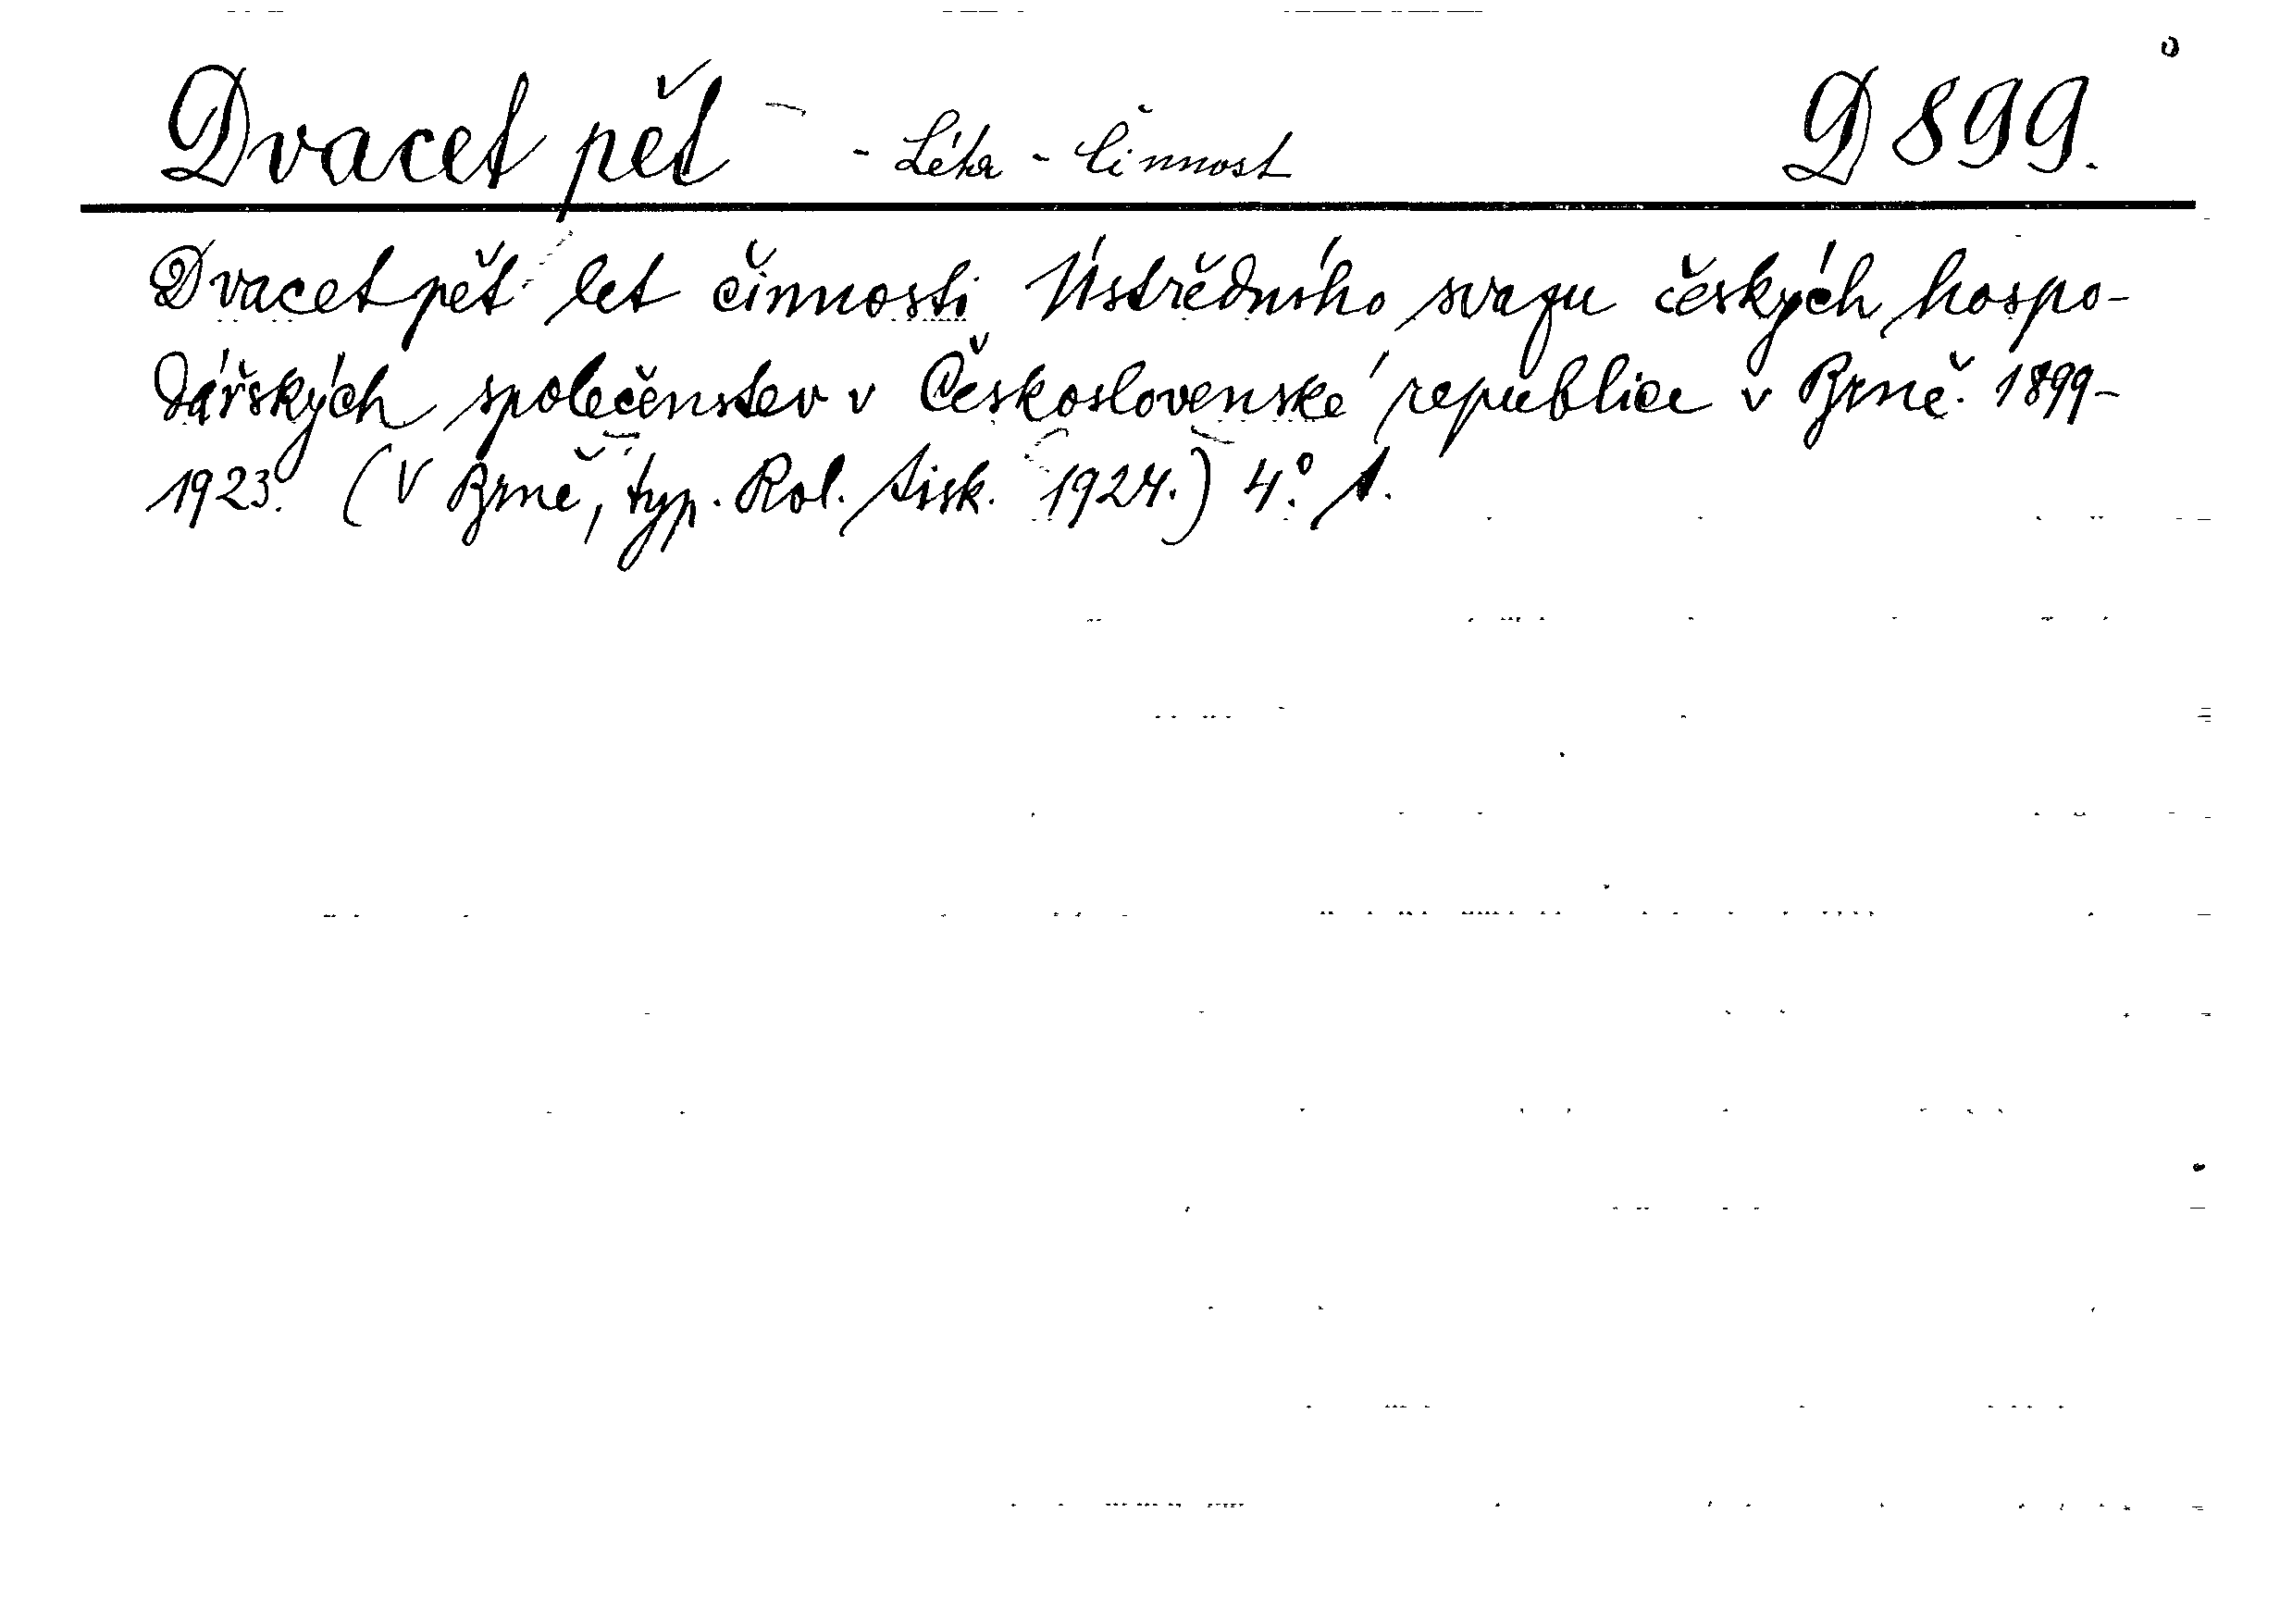 Dvacet pět - Léta - Činnost D 899.
Dvacet pět let činnosti Ústředního svazu českých hospo-
dářských společenstev v Československé republice v Brně. 1899-
1923. (V Brně, typ. Rol. tisk. 1924.) 4.°